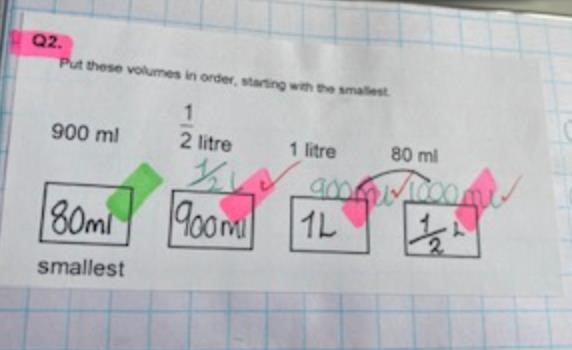 Q2.
Put these volumes in order, starting with the smallest.
900 ml 1/2 litre 1 litre 80 ml
1/2 L 900ml 1000ml
80ml 900ml 1L 1/2 L
smallest